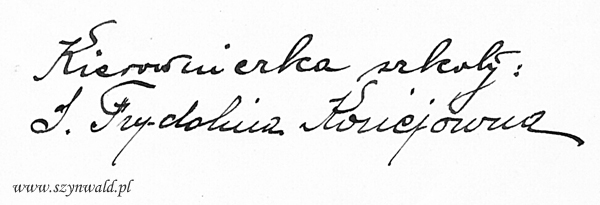 Kierowniczka szkoły:
S. Frydolina Końcjówna
www.szynwald.pl